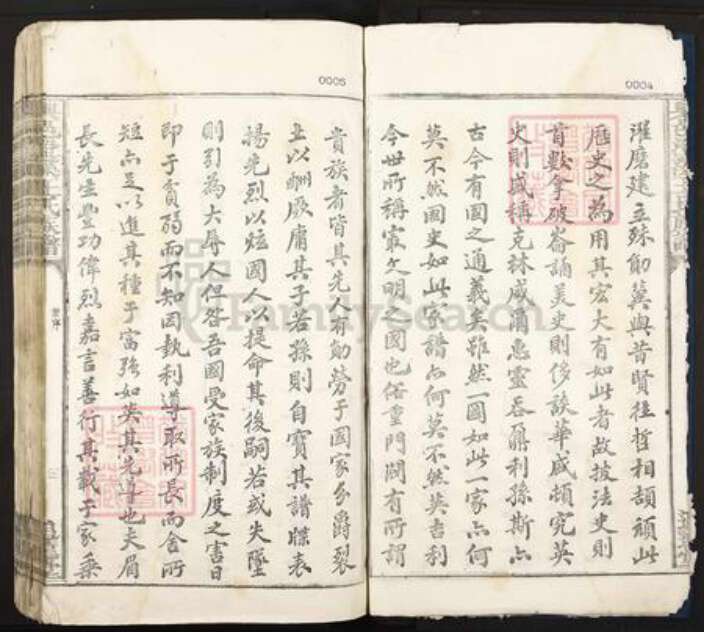 0004
濯磨建立殊勛冀與昔賢往哲相頡頏此
歷史之為用其宏大有如此者故披法史則
首數拿破崙誦美史則侈談華盛頓究英
史則咸稱克林威爾惠靈吞鼐利孫斯亦
古今有國之通義矣雖然一國如此一家亦何
莫不然國史如此家譜亦何莫不然英吉利
今世所稱最文明之國也俗重門閥有所謂
0005
貴族者皆其先人有勛勞于國家分爵裂
土以酬厥庸其子若孫則自寶其譜牒表
揚先烈以炫國人以提命其後嗣若或失墜
則引為大辱人但咎吾國受家族制度之害日
即于貧弱而不知因執利導取所長而舍所
短亦足以進其種于富強如英其先導也夫眉
長先生豐功偉烈嘉言善行其載于家乘
FamilySearch